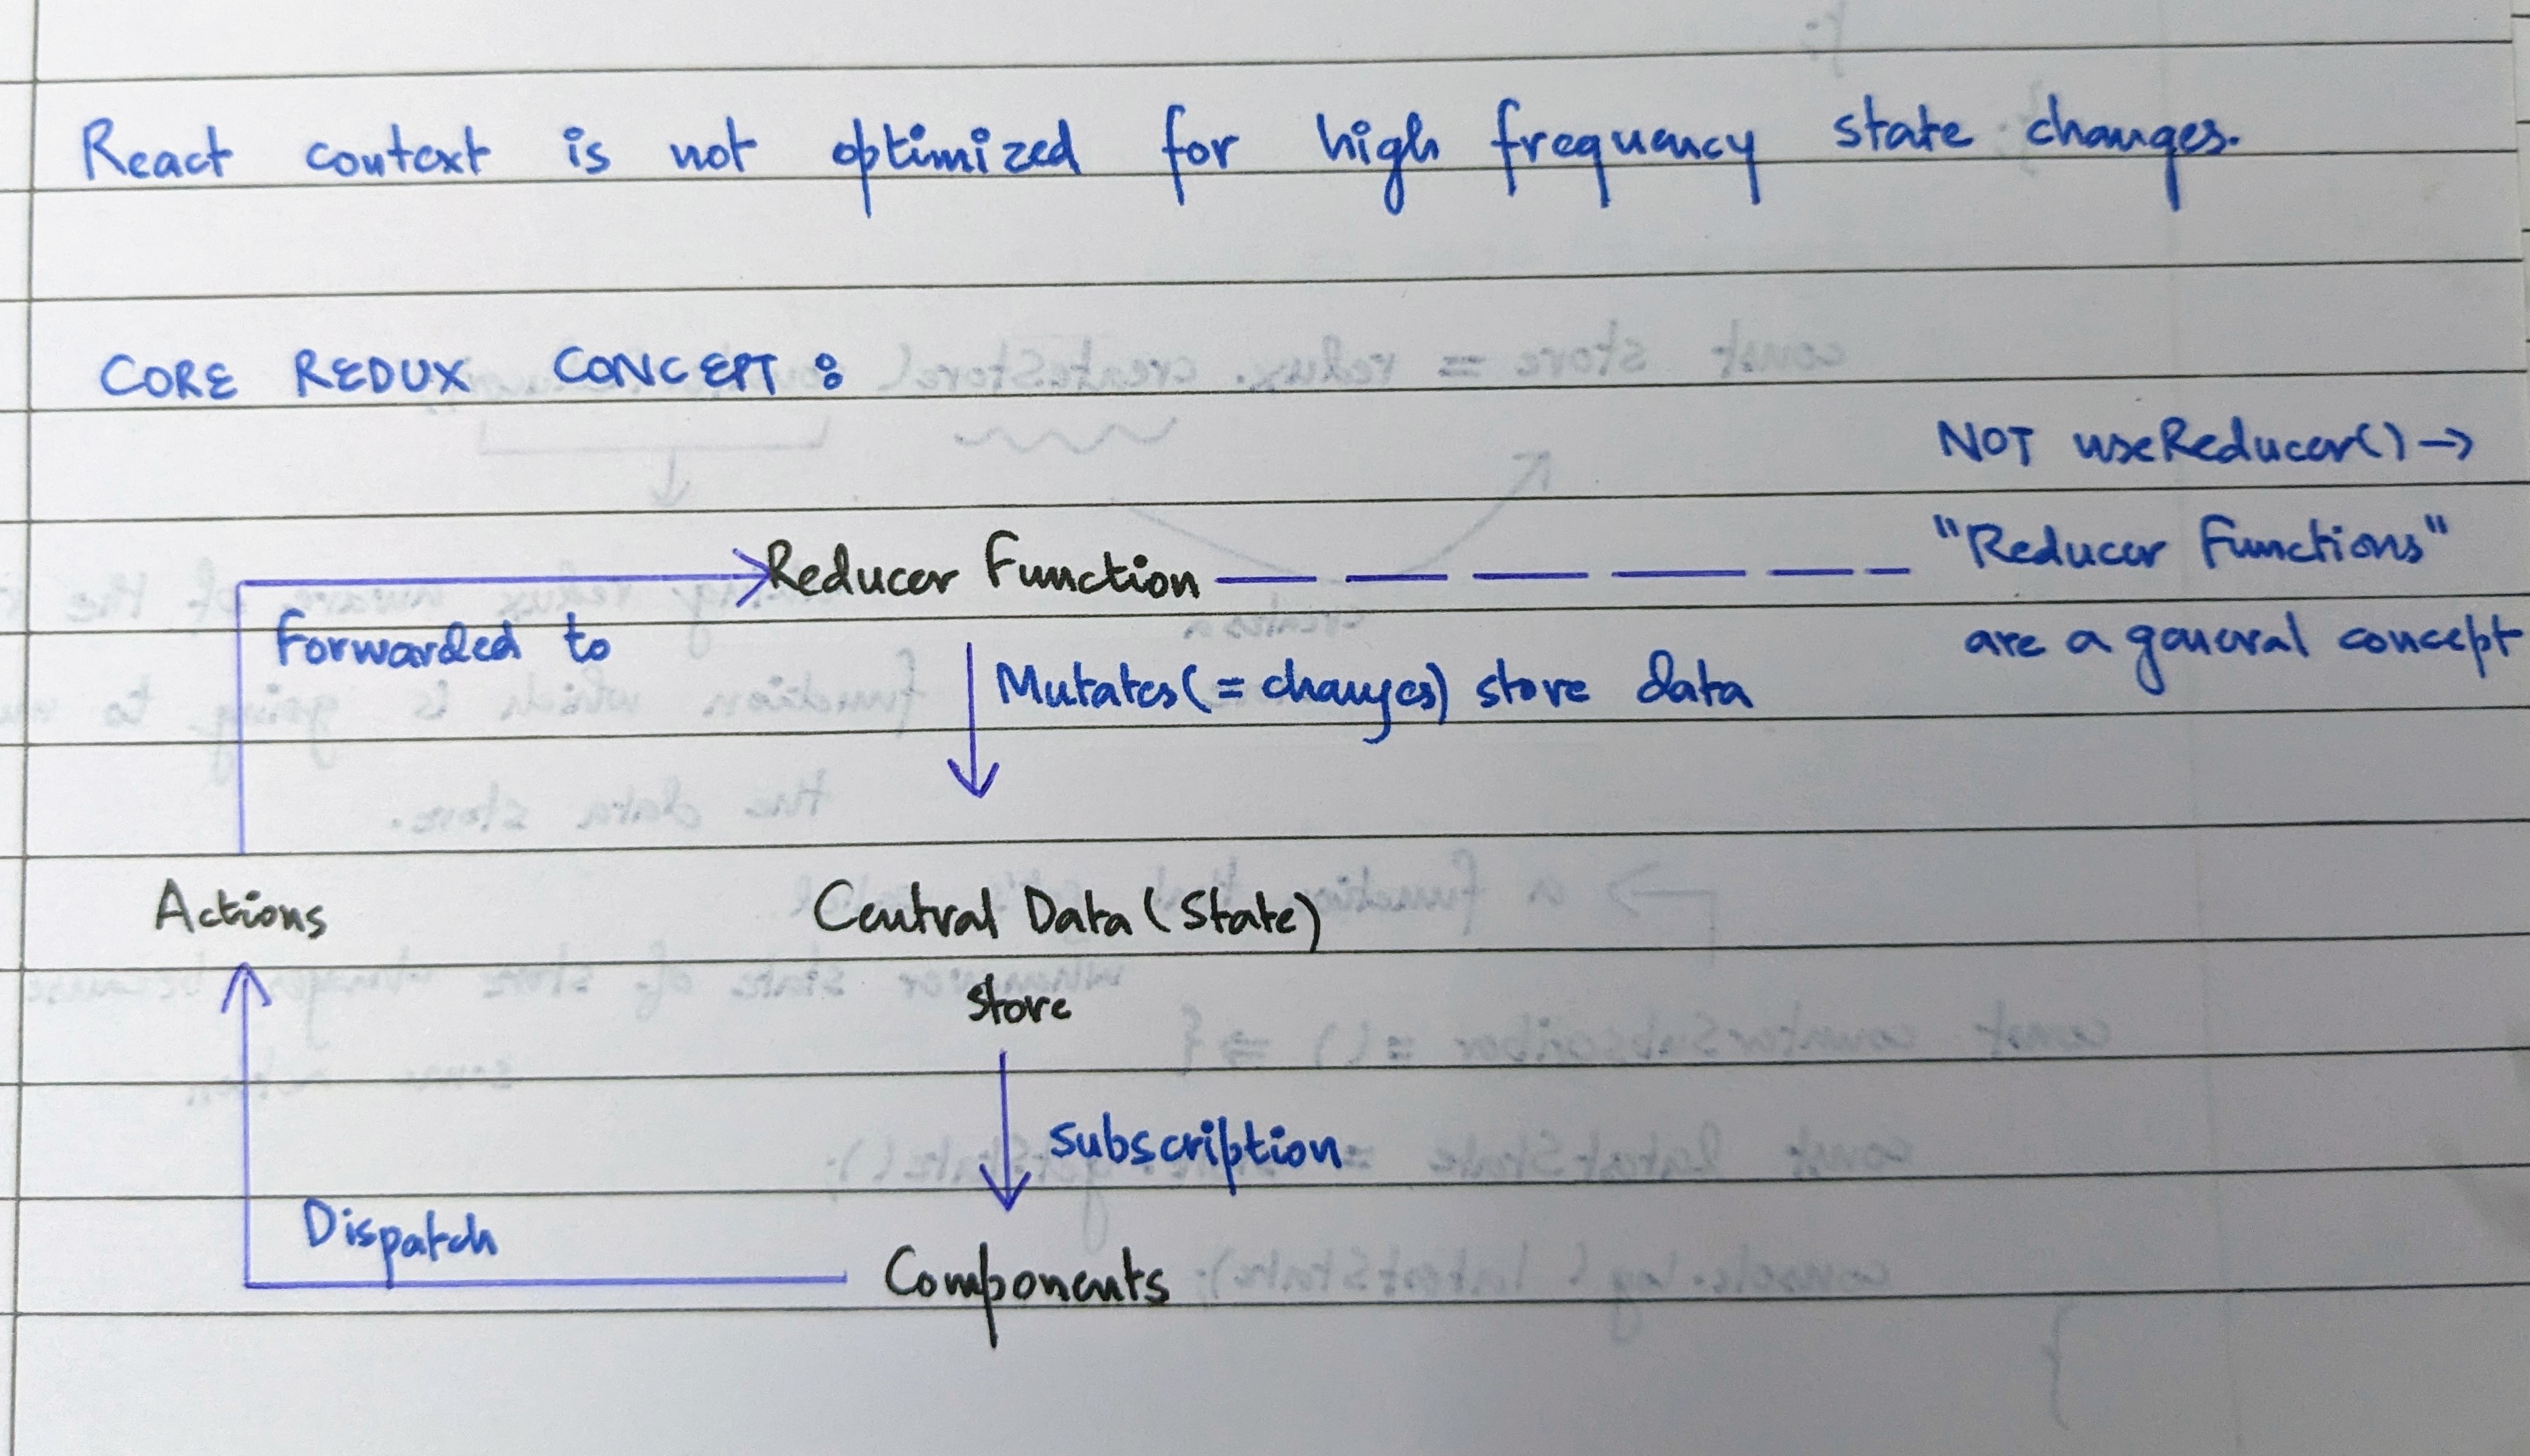 React context is not optimized for high frequency state changes.
CORE REDUX CONCEPT :
NOT useReducer() →
Reducer Function
"Reducer Functions"
Forwarded to
are a general concept
Mutates (= changes) store data
Actions
Central Data (State)
store
Subscription
Dispatch
Components